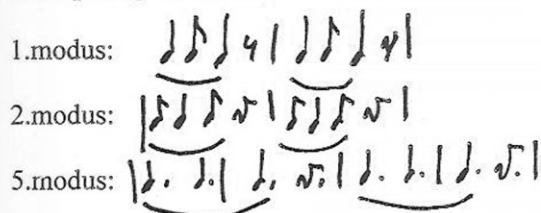 1.modus:
2.modus:
5.modus: